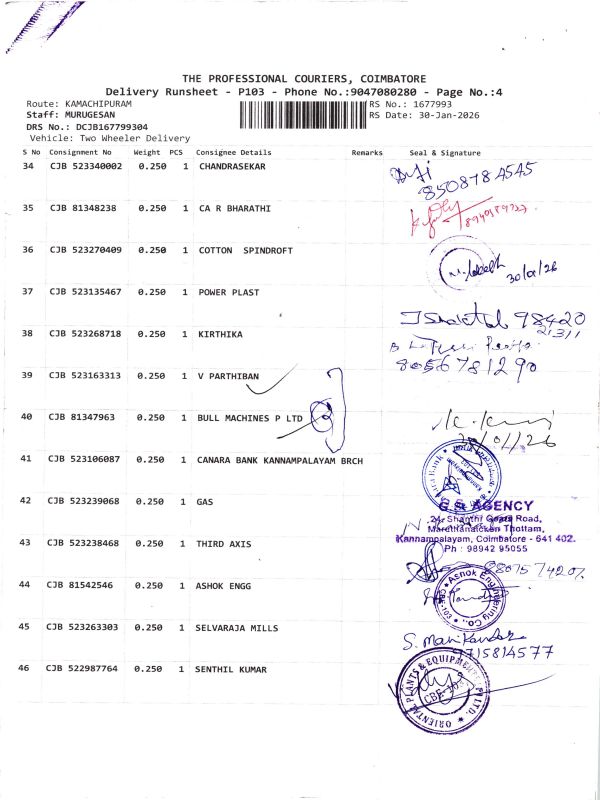 THE PROFESSIONAL COURIERS, COIMBATORE
Delivery Runsheet - P103 - Phone No.:9047080280 - Page No.:4
Route: KAMACHIPURAM
RS No.: 1677993
Staff: MURUGESAN
RS Date: 30-Jan-2026
DRS No.: DCJB167799304
Vehicle: Two Wheeler Delivery
S No Consignment No Weight PCS Consignee Details Remarks Seal & Signature
34 CJB 523340002 0.250 1 CHANDRASEKAR
8508784545
35 CJB 81348238 0.250 1 CA R BHARATHI
36 CJB 523270409 0.250 1 COTTON SPINDROFT
30/01/26
37 CJB 523135467 0.250 1 POWER PLAST
98420
21311
38 CJB 523268718 0.250 1 KIRTHIKA
8056781290
39 CJB 523163313 0.250 1 V PARTHIBAN
40 CJB 81347963 0.250 1 BULL MACHINES P LTD
30/01/26
41 CJB 523106087 0.250 1 CANARA BANK KANNAMPALAYAM BRCH
42 CJB 523239068 0.250 1 GAS
G.S. AGENCY
Road,
Thottam,
Kannampalayam, Coimbatore - 641 402.
Ph : 98942 95055
43 CJB 523238468 0.250 1 THIRD AXIS
44 CJB 81542546 0.250 1 ASHOK ENGG
Ashok Engineering Co.,
CBE-103
45 CJB 523263303 0.250 1 SELVARAJA MILLS
S. Manikandan
9715814577
46 CJB 522987764 0.250 1 SENTHIL KUMAR
ORIENTAL PLANTS & EQUIPMENTS P LTD.